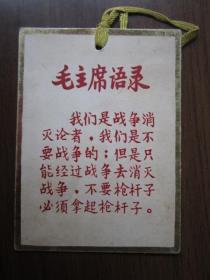 毛主席语录
我们是战争消
灭论者，我们是不
要战争的；但是只
能经过战争去消灭
战争，不要枪杆子
必须拿起枪杆子。